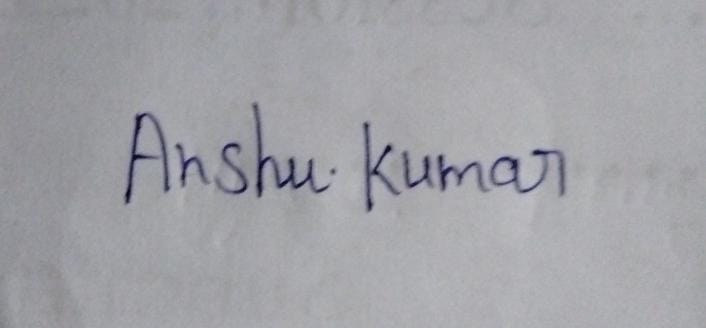 Anshu. Kumar